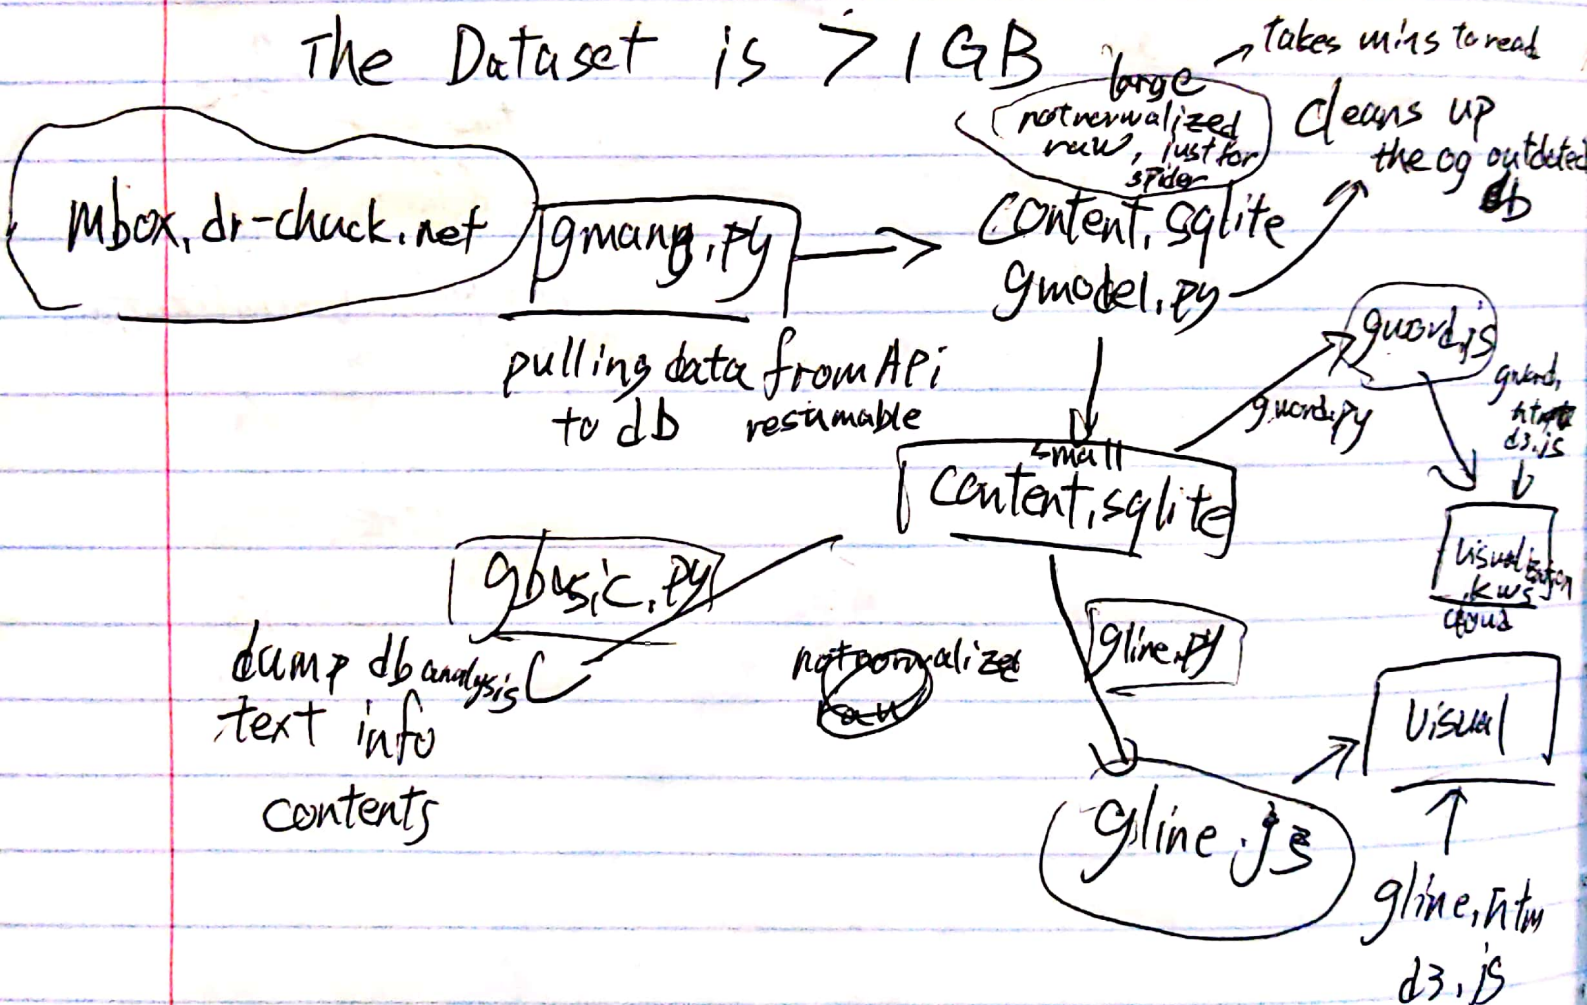 The Dataset is > 1 GB
takes mins to read
large
not normalized
raw, just for
spider
cleans up
the og outdated
db
mbox.dr-chuck.net
gmang.py
content.sqlite
gmodel.py
pulling data from APi
to db resumable
gword.js
gword.py
gword.
htm
d3.js
small
content.sqlite
visualization
kws
cloud
gbasic.py
dump db analysis
text info
contents
not normalized
raw
gline.py
visual
gline.js
gline.htm
d3.js